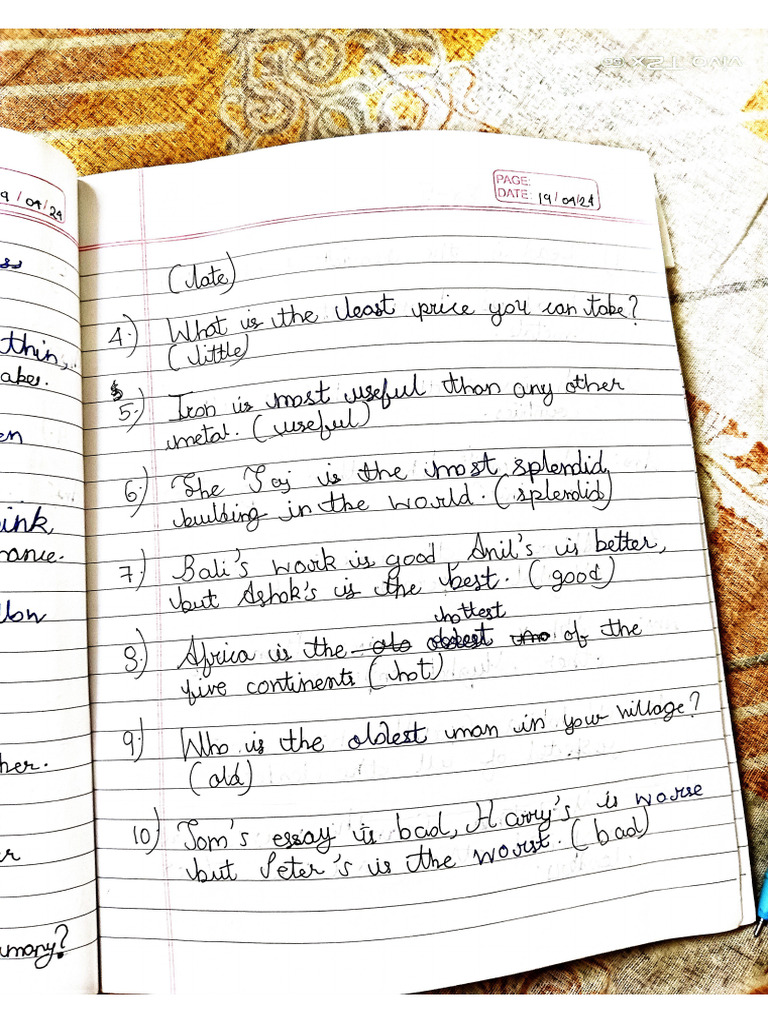 vivo T2x
9/04/24
PAGE:
DATE: 19/04/24
(late)
4.) What is the least price you can take?
(little)
5.) Iron is most useful than any other
metal. (useful)
6.) The Taj is the most splendid
building in the world. (splendid)
7.) Bali's work is good, Anil's is better,
but Ashok's is the best. (good)
hottest
8.) Africa is the of the
five continents (hot)
9.) Who is the oldest man in your village?
(old)
10) Tom's essay is bad, Harry's is worse
but Peter's is the worst. (bad)
ss
thin,
akes.
en
ink
mance.
her.
r
amony?